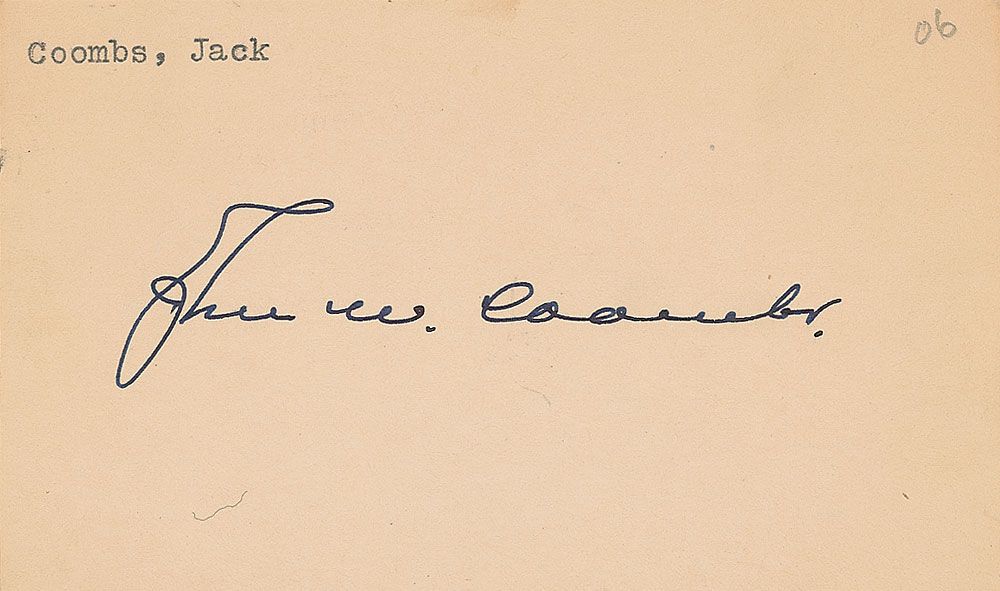 Coombs, Jack
06
John W. Coombs.